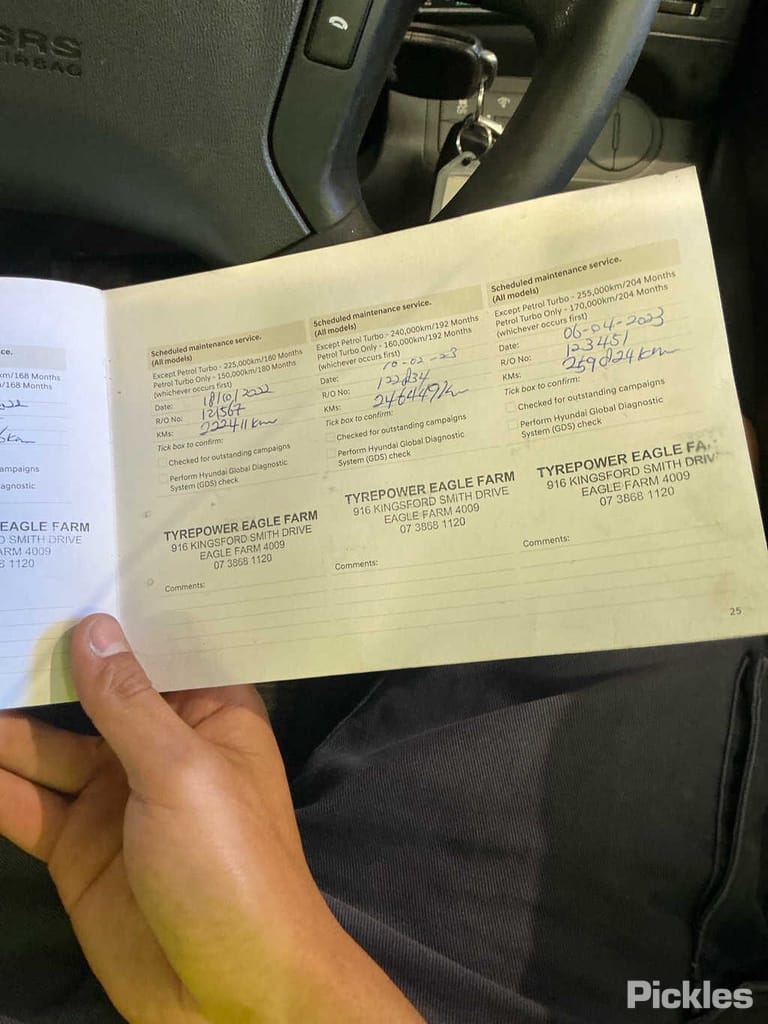 SRS
AIRBAG
ce.
km/168 Months
/168 Months
ampaigns
agnostic
EAGLE FARM
D SMITH DRIVE
FARM 4009
8 1120
Scheduled maintenance service.
(All models)
Except Petrol Turbo - 225,000km/180 Months
Petrol Turbo Only - 150,000km/180 Months
(whichever occurs first)
Date: 18/10/2022
R/O No: 121567
KMs: 222411km
Tick box to confirm:
Checked for outstanding campaigns
Perform Hyundai Global Diagnostic
System (GDS) check
TYREPOWER EAGLE FARM
916 KINGSFORD SMITH DRIVE
EAGLE FARM 4009
07 3868 1120
Comments:
Scheduled maintenance service.
(All models)
Except Petrol Turbo - 240,000km/192 Months
Petrol Turbo Only - 160,000km/192 Months
(whichever occurs first)
Date: 10-02-23
R/O No: 122834
KMs: 246449km
Tick box to confirm:
Checked for outstanding campaigns
Perform Hyundai Global Diagnostic
System (GDS) check
TYREPOWER EAGLE FARM
916 KINGSFORD SMITH DRIVE
EAGLE FARM 4009
07 3868 1120
Comments:
Scheduled maintenance service.
(All models)
Except Petrol Turbo - 255,000km/204 Months
Petrol Turbo Only - 170,000km/204 Months
(whichever occurs first)
Date: 06-04-2023
R/O No: 123451
KMs: 259824km
Tick box to confirm:
Checked for outstanding campaigns
Perform Hyundai Global Diagnostic
System (GDS) check
TYREPOWER EAGLE FA
916 KINGSFORD SMITH DRIV
EAGLE FARM 4009
07 3868 1120
Comments:
25
Pickles